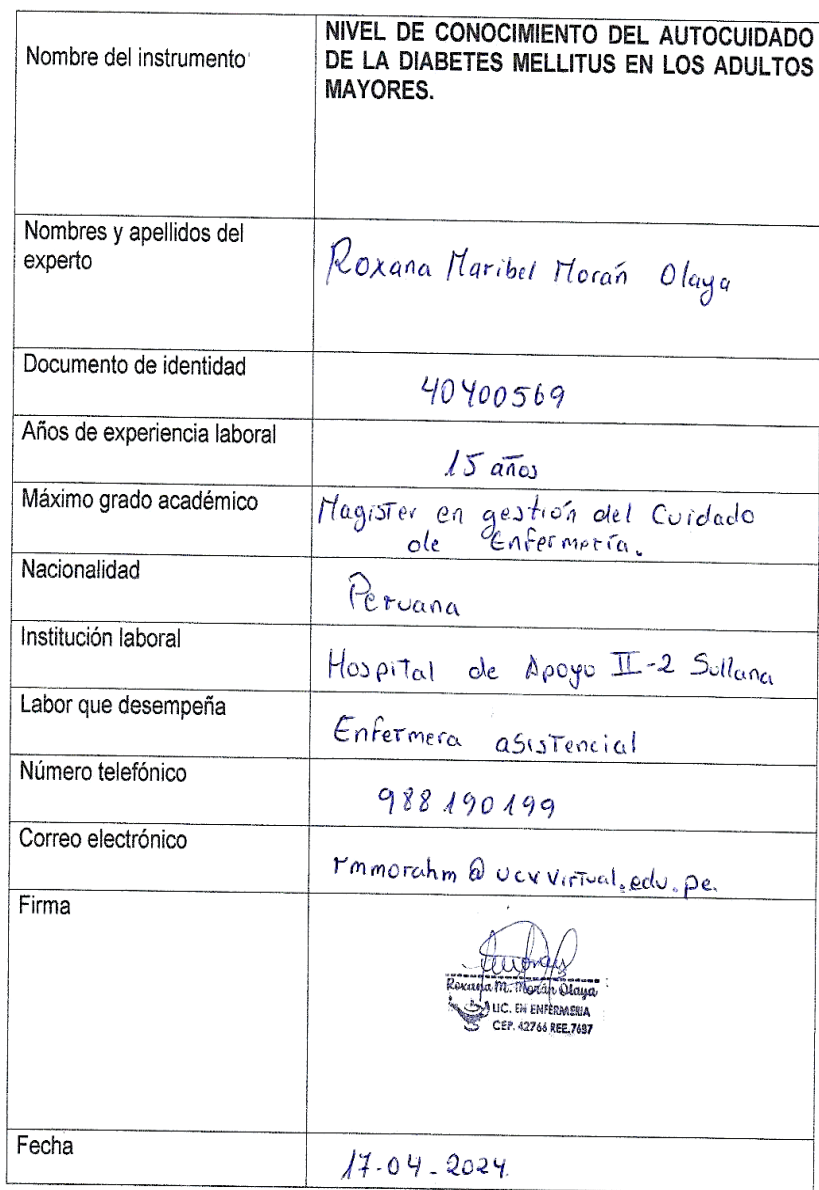 Nombre del instrumento
NIVEL DE CONOCIMIENTO DEL AUTOCUIDADO
DE LA DIABETES MELLITUS EN LOS ADULTOS
MAYORES.
Nombres y apellidos del
experto
Roxana Maribel Morán Olaya
Documento de identidad
40400569
Años de experiencia laboral
15 años
Máximo grado académico
Magister en gestión del Cuidado
de Enfermería.
Nacionalidad
Peruana
Institución laboral
Hospital de Apoyo II-2 Sullana
Labor que desempeña
Enfermera asistencial
Número telefónico
988 190 199
Correo electrónico
rmmorahm@ucvvirtual.edu.pe.
Firma
Roxana M. Morán Olaya
LIC. EN ENFERMERIA
CEP. 42766 REE.7687
Fecha
17-04-2024.